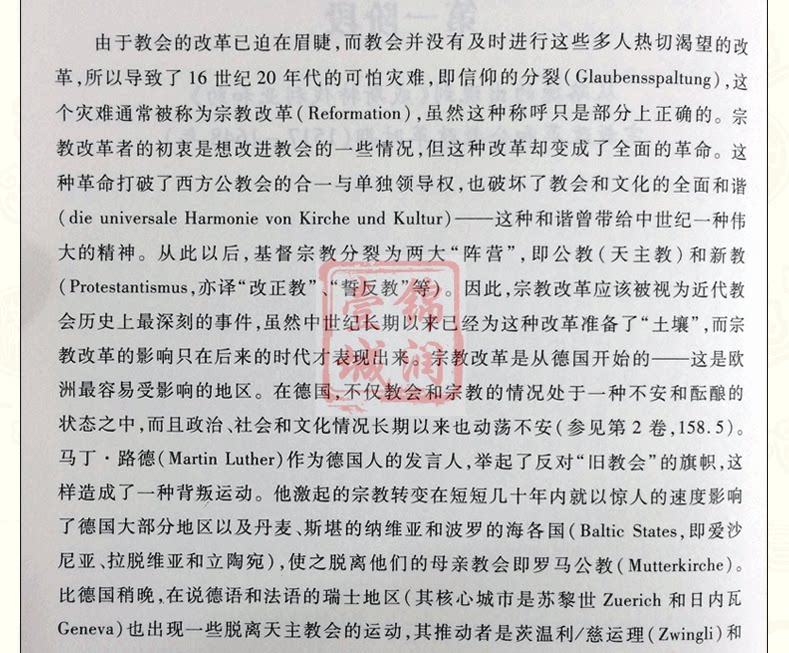 由于教会的改革已迫在眉睫,而教会并没有及时进行这些多人热切渴望的改
革,所以导致了16世纪20年代的可怕灾难,即信仰的分裂(Glaubensspaltung),这
个灾难通常被称为宗教改革(Reformation),虽然这种称呼只是部分上正确的。宗
教改革者的初衷是想改进教会的一些情况,但这种改革却变成了全面的革命。这
种革命打破了西方公教会的合一与单独领导权,也破坏了教会和文化的全面和谐
(die universale Harmonie von Kirche und Kultur)——这种和谐曾带给中世纪一种伟
大的精神。从此以后,基督宗教分裂为两大“阵营”,即公教(天主教)和新教
(Protestantismus,亦译“改正教”、“誓反教”等)。因此,宗教改革应该被视为近代教
会历史上最深刻的事件,虽然中世纪长期以来已经为这种改革准备了“土壤”,而宗
教改革的影响只在后来的时代才表现出来。宗教改革是从德国开始的——这是欧
洲最容易受影响的地区。在德国,不仅教会和宗教的情况处于一种不安和酝酿的
状态之中,而且政治、社会和文化情况长期以来也动荡不安(参见第2卷,158.5)。
马丁·路德(Martin Luther)作为德国人的发言人,举起了反对“旧教会”的旗帜,这
样造成了一种背叛运动。他激起的宗教转变在短短几十年内就以惊人的速度影响
了德国大部分地区以及丹麦、斯堪的纳维亚和波罗的海各国(Baltic States,即爱沙
尼亚、拉脱维亚和立陶宛),使之脱离他们的母亲教会即罗马公教(Mutterkirche)。
比德国稍晚,在说德语和法语的瑞士地区(其核心城市是苏黎世 Zuerich 和日内瓦
Geneva)也出现一些脱离天主教会的运动,其推动者是茨温利/慈运理(Zwingli)和
锦润
壹城